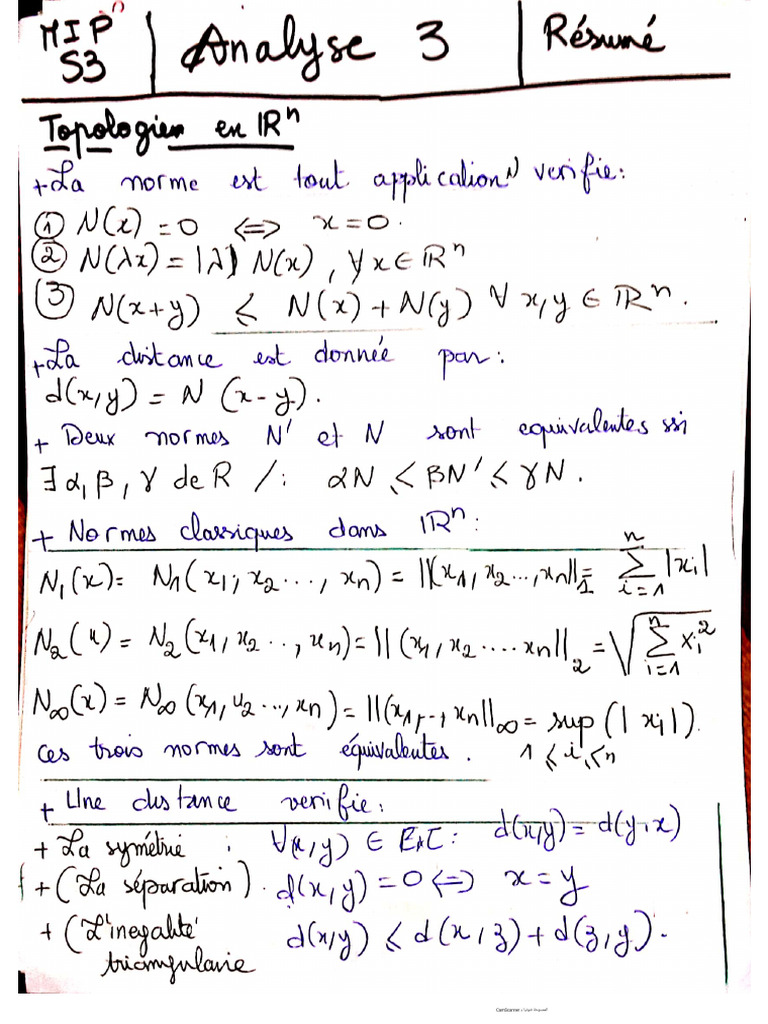 MIP
S3
Analyse 3
Résumé
Topologien en ℝⁿ
+ La norme est tout application N verifie:
① N(x) = 0 ⟺ x = 0.
② N(λx) = |λ| N(x), ∀ x ∈ ℝⁿ
③ N(x+y) ≤ N(x) + N(y) ∀ x, y ∈ ℝⁿ.
+ La distance est donnée par:
d(x, y) = N (x - y).
+ Deux normes N' et N sont equivalentes ssi
∃ α, β, γ de R /: αN ≤ βN' ≤ γN.
+ Normes classiques dans ℝⁿ:
N₁(x) = N₁(x₁; x₂ ..., xₙ) = ||(x₁, x₂ ..., xₙ||₁ = ∑ⁿᵢ₌₁ |xᵢ|
N₂(x) = N₂(x₁, x₂ .., xₙ) = ||(x₁, x₂ .... xₙ||₂ = √∑ⁿᵢ₌₁ xᵢ²
N∞(x) = N∞(x₁, x₂ .., xₙ) = ||(x₁, .., xₙ||∞ = sup (|xᵢ|).
1 ≤ i ≤ n
ces trois normes sont équivalentes.
+ Une distance verifie:
+ La symétrie : ∀(x, y) ∈ ExE : d(x,y) = d(y, x)
+ (La séparation). d(x, y) = 0 ⟺ x = y
+ (L'inegalité d(x,y) ≤ d(x, z) + d(z, y).
triangulaire
CamScanner